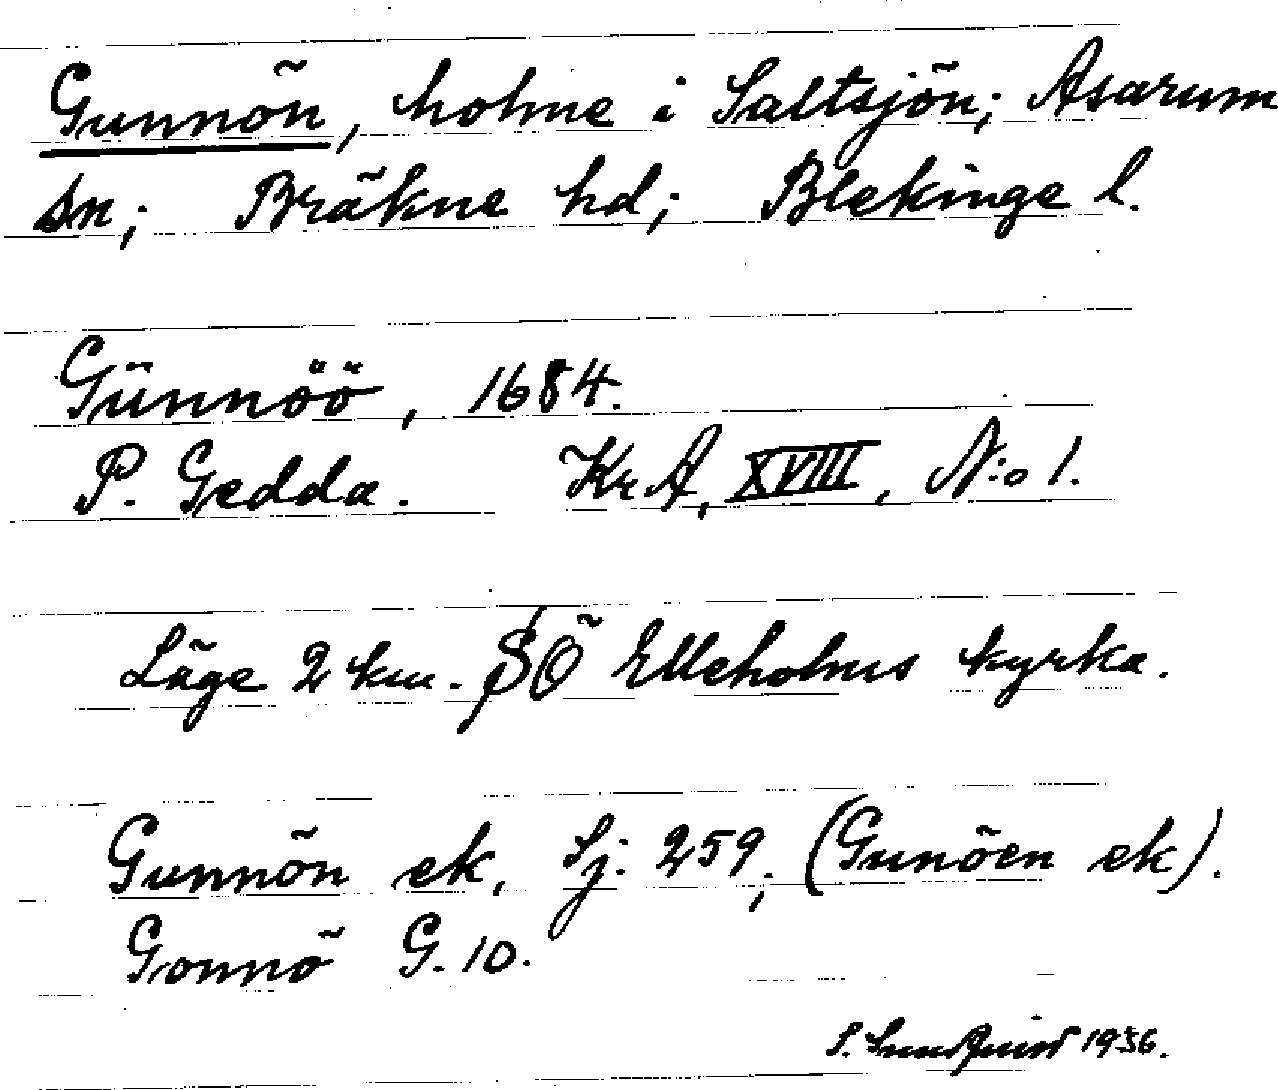 Gunnön, holme i Saltsjön; Asarum
sn; Bräkne hd; Blekinge l.
Günnöö, 1684.
P. Gedda. KrA, XVIII, N:o 1.
Läge 2 km. SÖ Elleholms kyrka.
Gunnön ek, Sj. 259; (Gunöen ek).
Gonnö G. 10.
S. Sundquist 1936.